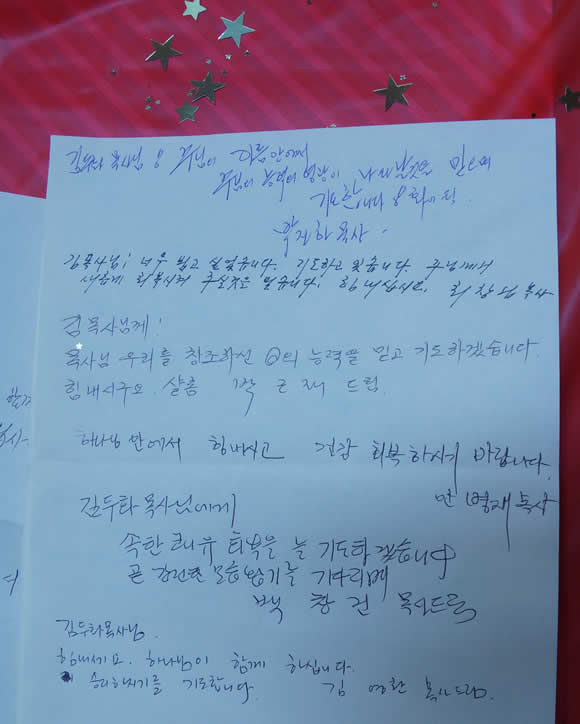 김두화 목사님 & 주님의 이름안에서
주님의 능력의 영광이 나타날것을 믿으며
기도합니다 & 화이팅.
목사.
김목사님! 너무 뵙고 싶었습니다. 기도하고 있습니다. 주님께서
새롭게 회복시켜 주실것을 믿습니다! 힘내십시오. 목사
김목사님께!
목사님 우리를 창조하신 의 능력을 믿고 기도하겠습니다.
힘내시구요. 샬롬 박 드림.
하나님 안에서 힘내시고 건강 회복하시기 바랍니다.
목사
김두화 목사님에게
속한 회복을 늘 기도하겠습니다
곧 강건한 모습 뵙기를 기다리며
백 창 건 목사드림
김두화목사님.
힘내세요. 하나님이 함께 하십니다.
승리하시기를 기도합니다. 김 영환 목사드림.